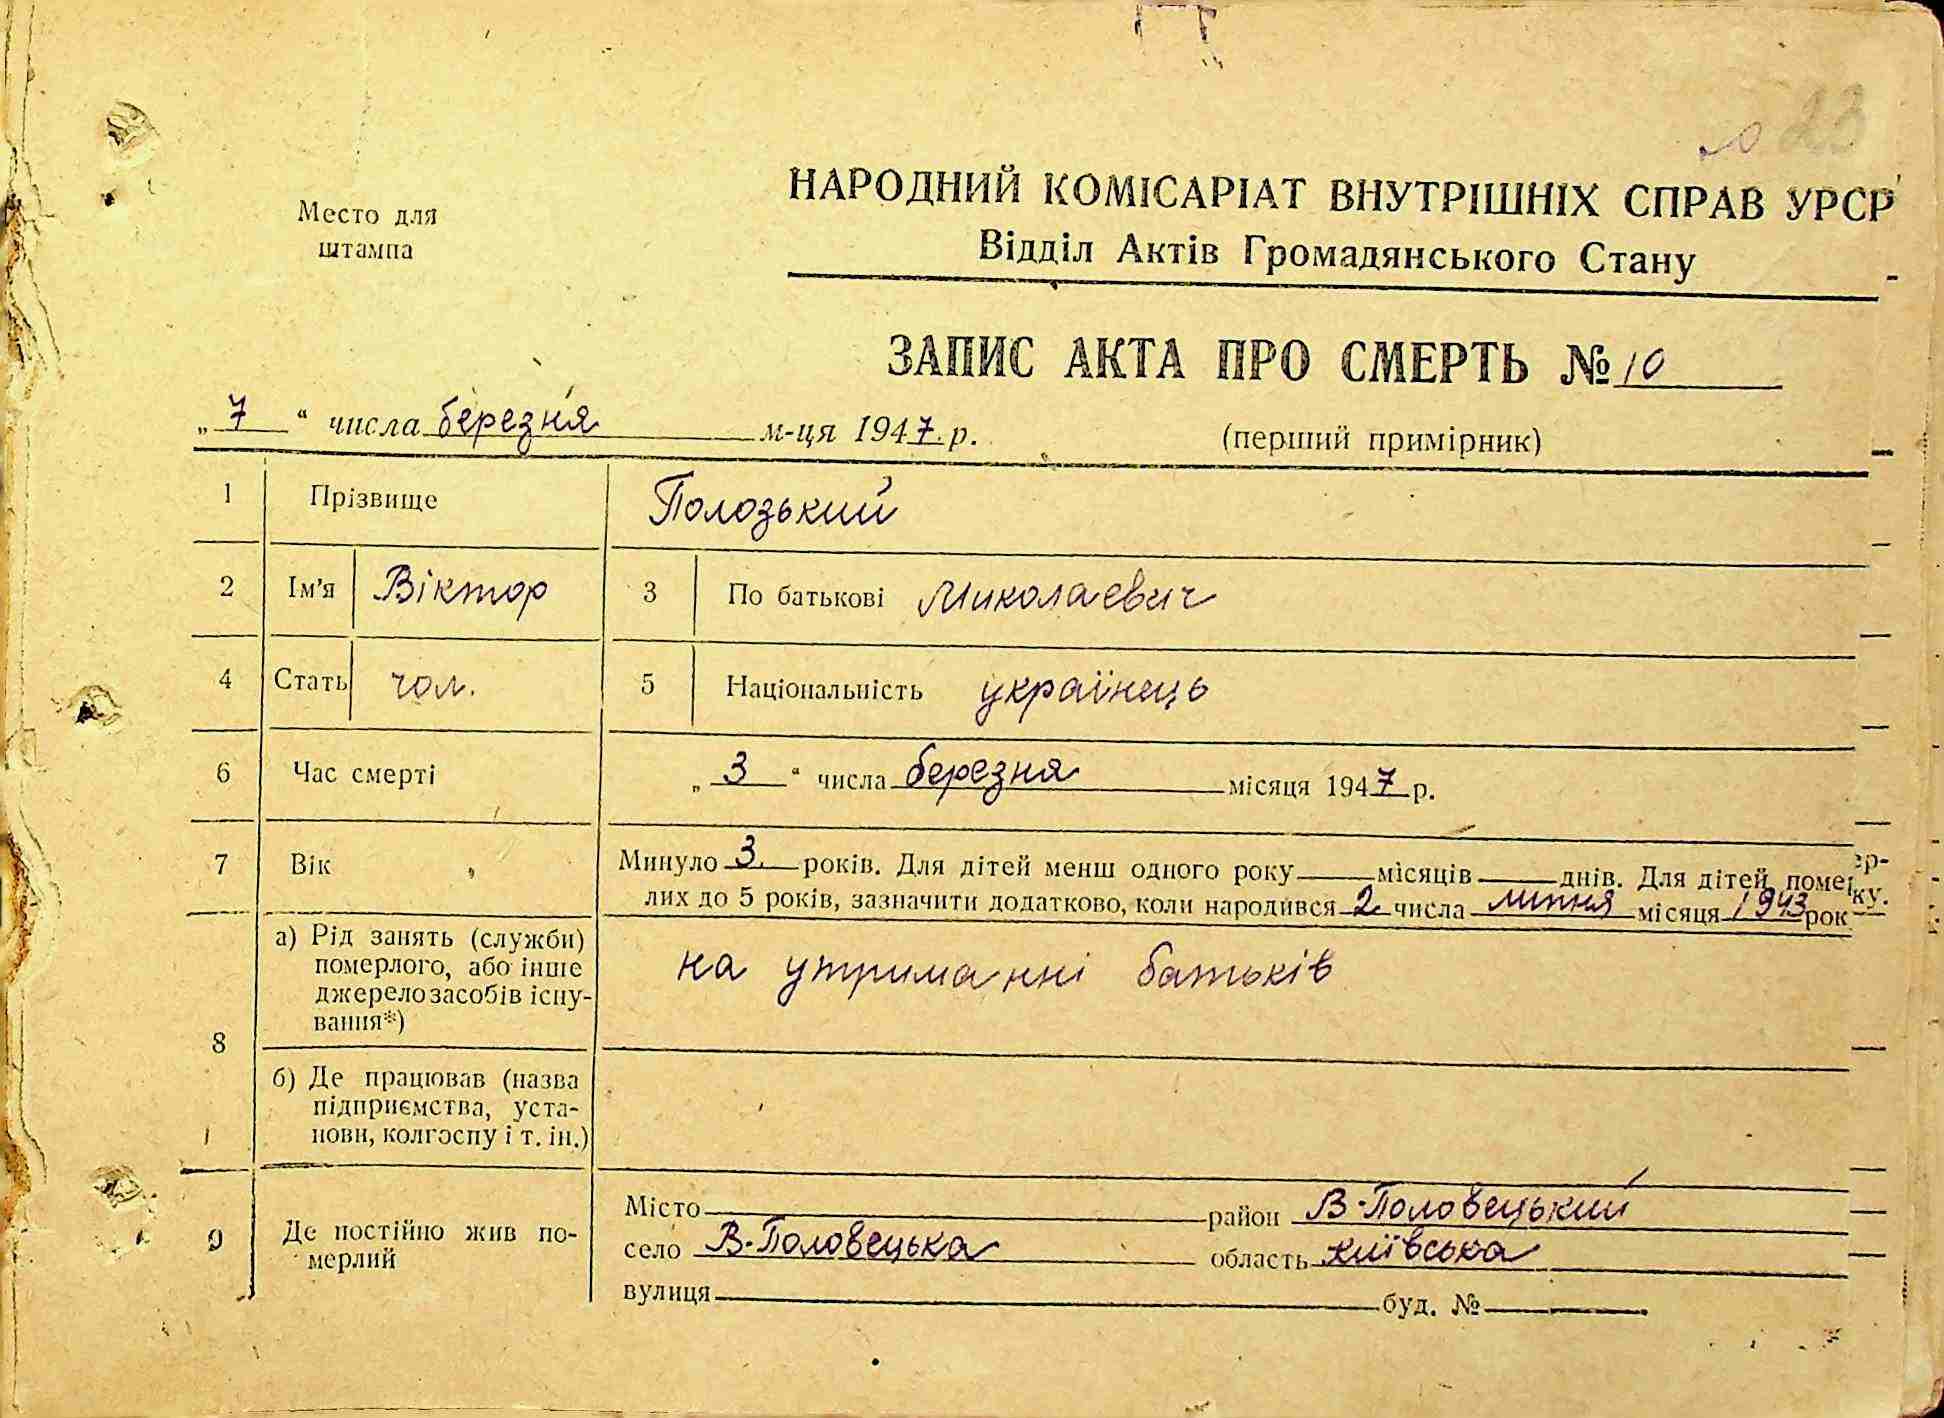 23
Место для
штампа
НАРОДНИЙ КОМІСАРІАТ ВНУТРІШНІХ СПРАВ УРСР
Відділ Актів Громадянського Стану
ЗАПИС АКТА ПРО СМЕРТЬ № 10
„ 7 “ числа березня м-ця 1947 р. (перший примірник)
1 Прізвище Полозький
2 Ім'я Віктор 3 По батькові Миколаевич
4 Стать чол. 5 Національність українець
6 Час смерті „ 3 “ числа березня місяця 1947 р.
7 Вік Минуло 3 років. Для дітей менш одного року місяців днів. Для дітей, помер-
лих до 5 років, зазначити додатково, коли народився 2 числа липня місяця 1943 року.
8 а) Рід занять (служби)
померлого, або інше
джерело засобів існу-
вання*) на утриманні батьків
б) Де працював (назва
підприємства, уста-
нови, колгоспу і т. ін.)
9 Де постійно жив по-
мерлий
Місто район В-Половецький
село В-Половецька область київська
вулиця буд. №